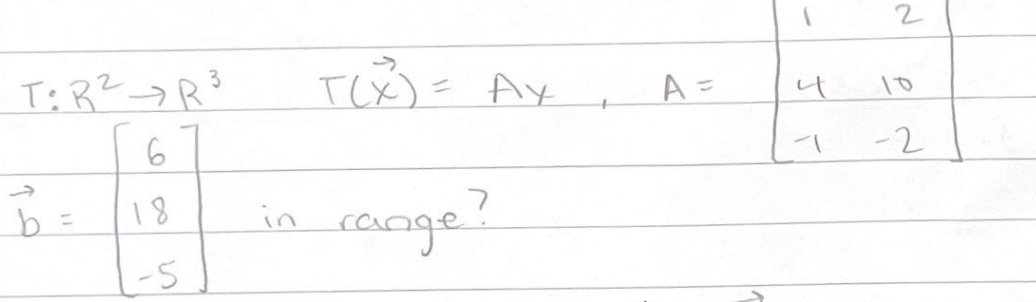 T: R² → R³   T(x⃗) = Ax, A = [1 2; 4 10; -1 -2]
b⃗ = [6; 18; -5] in range?